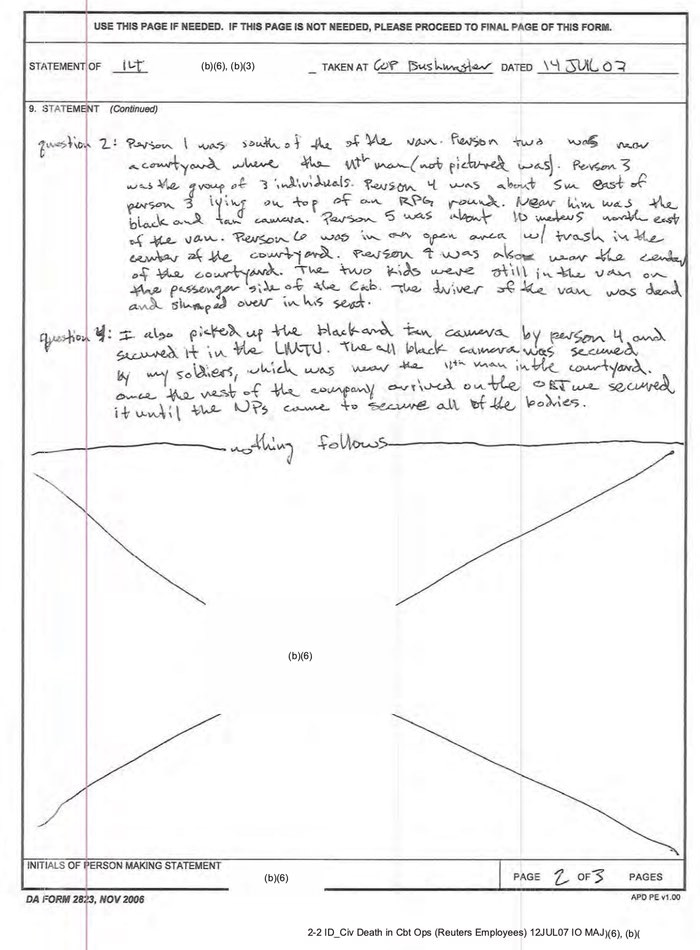 USE THIS PAGE IF NEEDED. IF THIS PAGE IS NOT NEEDED, PLEASE PROCEED TO FINAL PAGE OF THIS FORM.
STATEMENT OF 1LT (b)(6), (b)(3) TAKEN AT COP Bushmaster DATED 14 JUL 07
9. STATEMENT (Continued)
question 2: Person 1 was south of the of the van. Person two was near
a courtyard where the 11th man (not pictured was). Person 3
was the group of 3 individuals. Person 4 was about 5m east of
person 3 lying on top of an RPG round. Near him was the
black and tan camera. Person 5 was about 10 meters north east
of the van. Person 6 was in an open area w/ trash in the
center of the courtyard. Person 9 was also near the center
of the courtyard. The two kids were still in the van on
the passenger side of the cab. The driver of the van was dead
and slumped over in his seat.
question 4: I also picked up the black and tan camera by person 4 and
secured it in the LMTV. The all black camera was secured
by my soldiers, which was near the 11th man in the courtyard.
once the rest of the company arrived on the OBJ we secured
it until the NPs came to secure all of the bodies.
nothing follows
(b)(6)
INITIALS OF PERSON MAKING STATEMENT
(b)(6)
PAGE 2 OF 3 PAGES
DA FORM 2823, NOV 2006
APD PE v1.00
2-2 ID_Civ Death in Cbt Ops (Reuters Employees) 12JUL07 IO MAJ)(6), (b)(